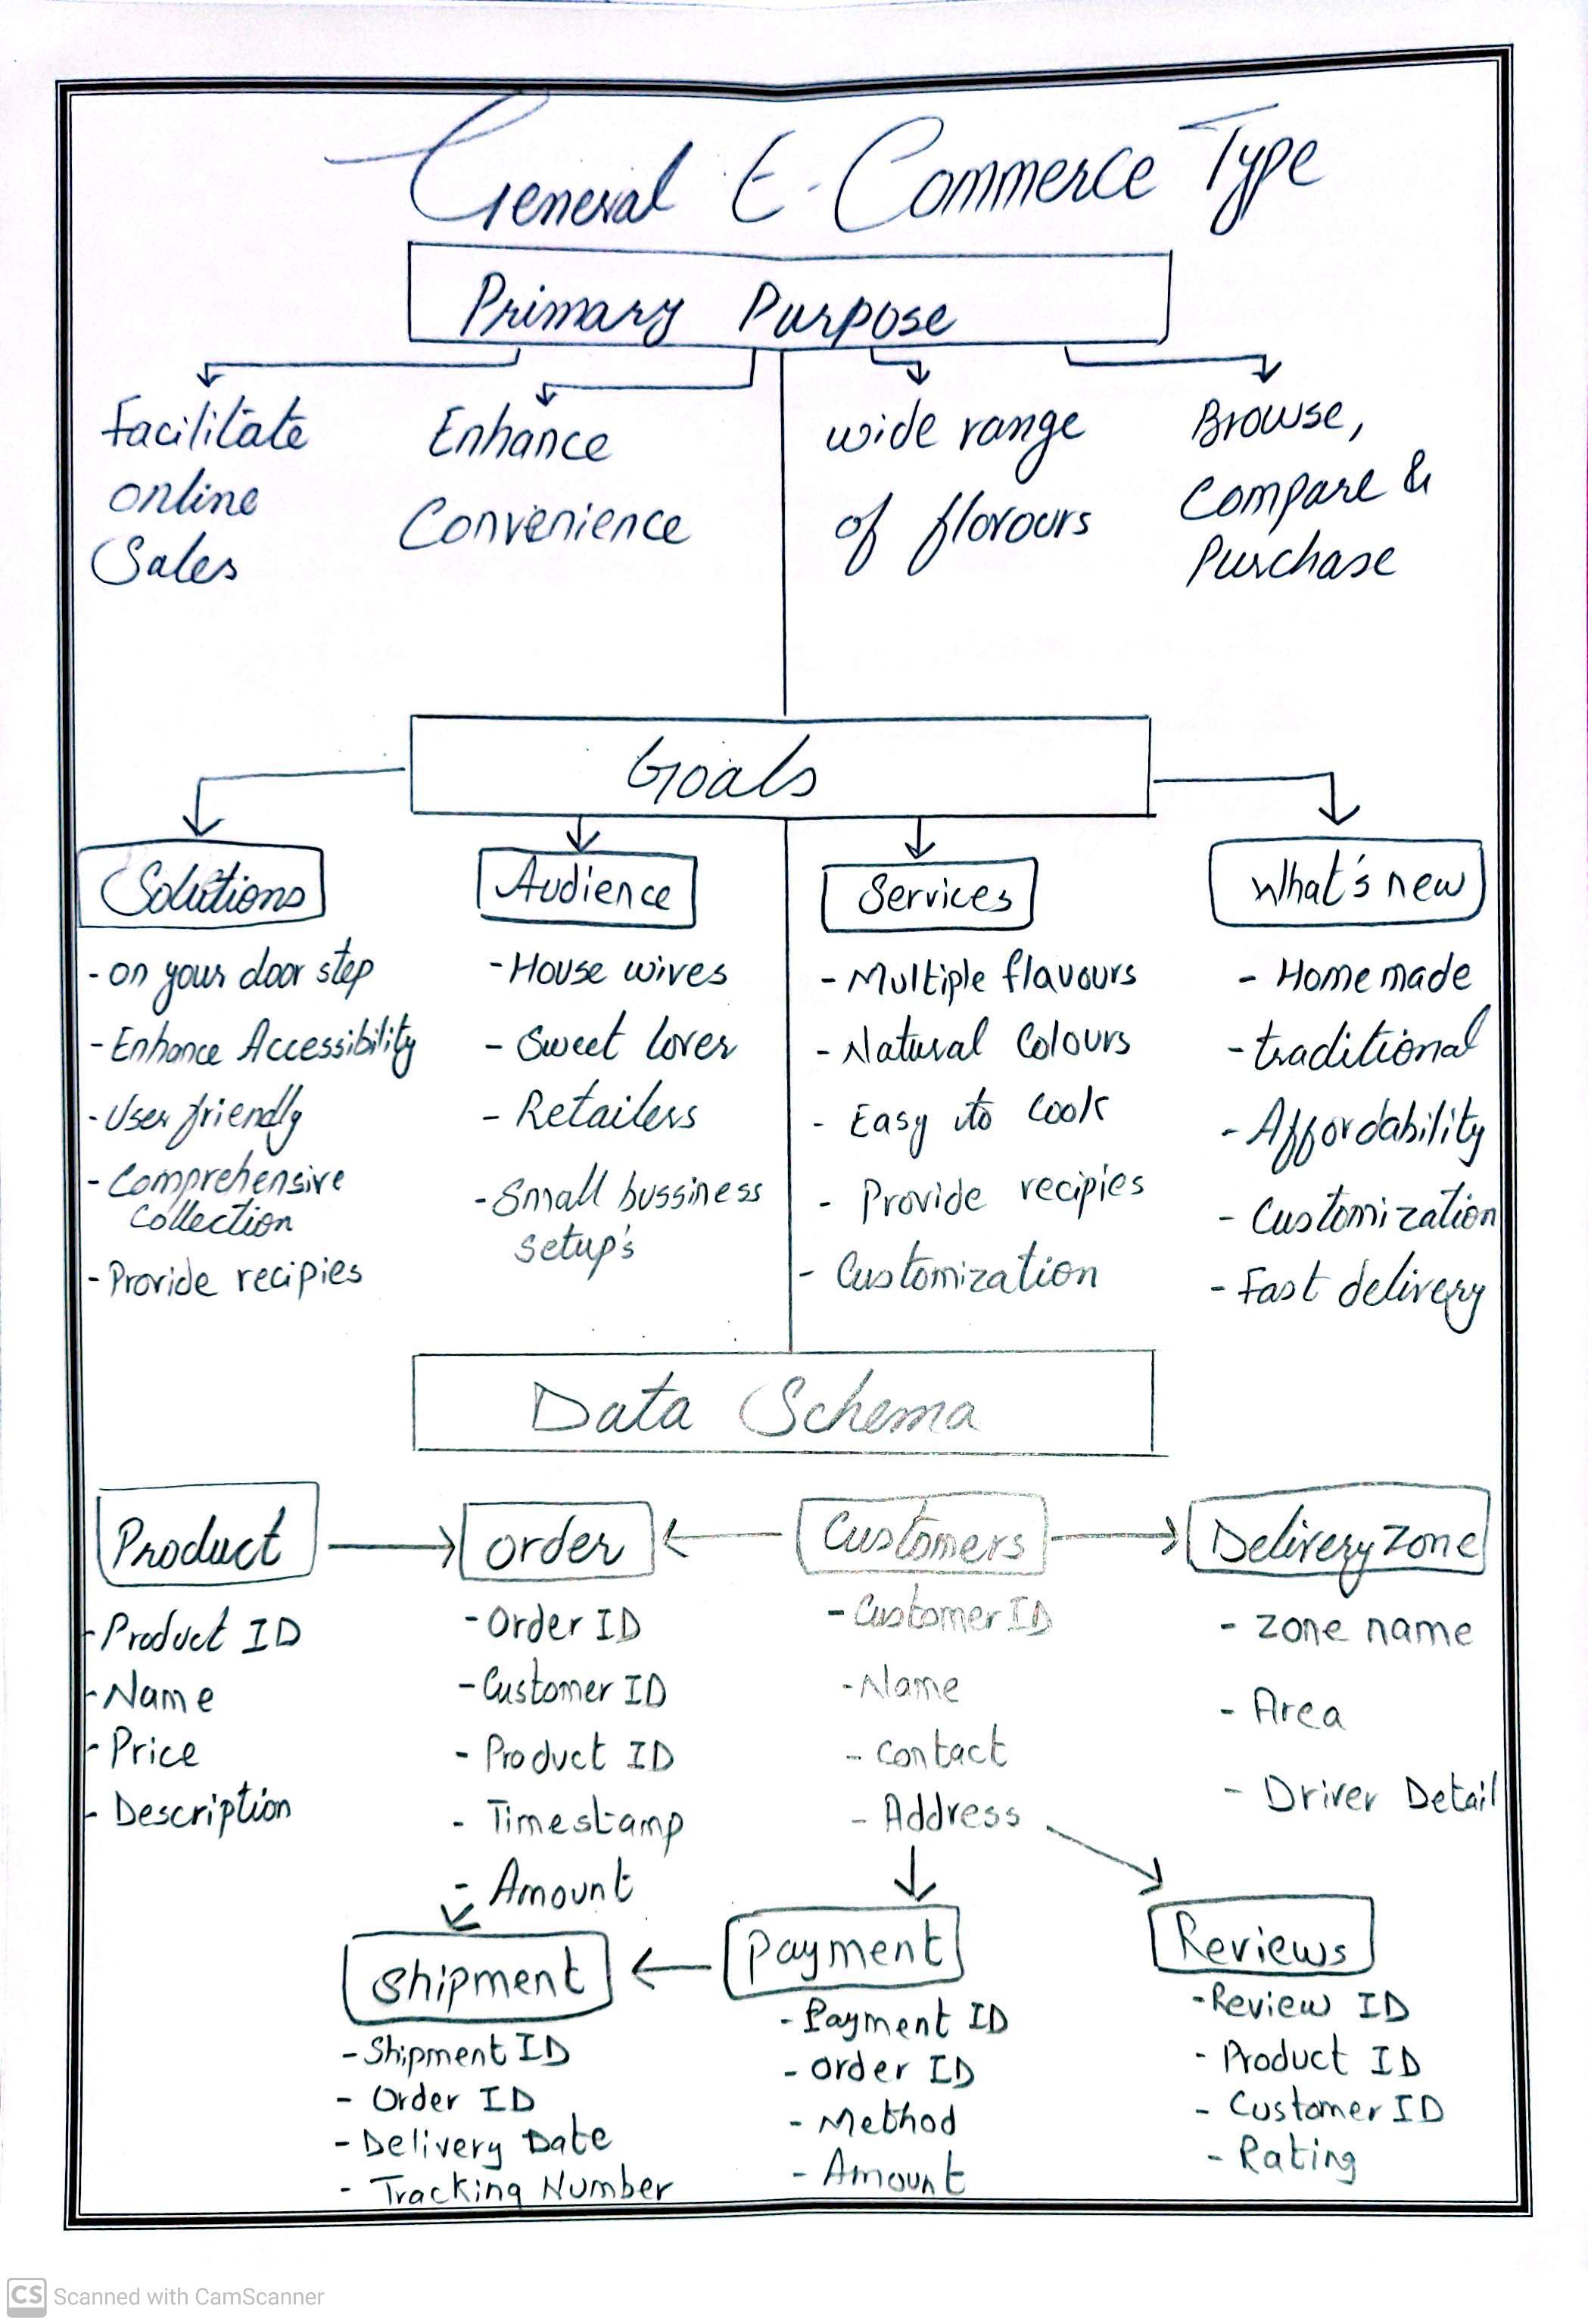 General E-Commerce Type
Primary Purpose
Facilitate
online
Sales
Enhance
Convenience
wide range
of flovours
Browse,
Compare &
Purchase
Goals
Solutions
- on your door step
- Enhance Accessibility
- User friendly
- Comprehensive
collection
- Provide recipies
Audience
- House wives
- Sweet lover
- Retailers
- Small bussiness
setup's
Services
- Multiple flavours
- Natural Colours
- Easy to Cook
- Provide recipies
- Customization
What's new
- Homemade
- traditional
- Affordability
- Customization
- Fast delivery
Data Schema
Product
- Product ID
- Name
- Price
- Description
order
- Order ID
- Customer ID
- Product ID
- Timestamp
- Amount
Customers
- Customer ID
- Name
- Contact
- Address
Delivery zone
- zone name
- Area
- Driver Detail
Shipment
- Shipment ID
- Order ID
- Delivery Date
- Tracking Number
Payment
- Payment ID
- Order ID
- Method
- Amount
Reviews
- Review ID
- Product ID
- Customer ID
- Rating
CS Scanned with CamScanner